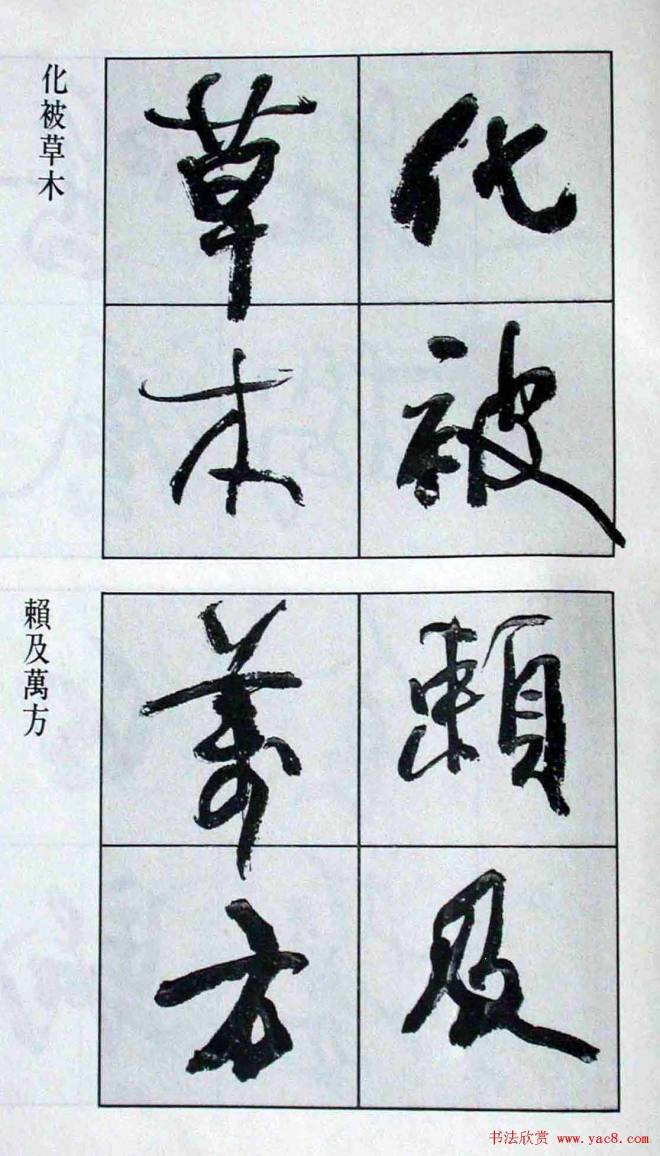 化被
草木
化被草木
賴及
萬方
賴及萬方
书法欣赏 www.yac8.com